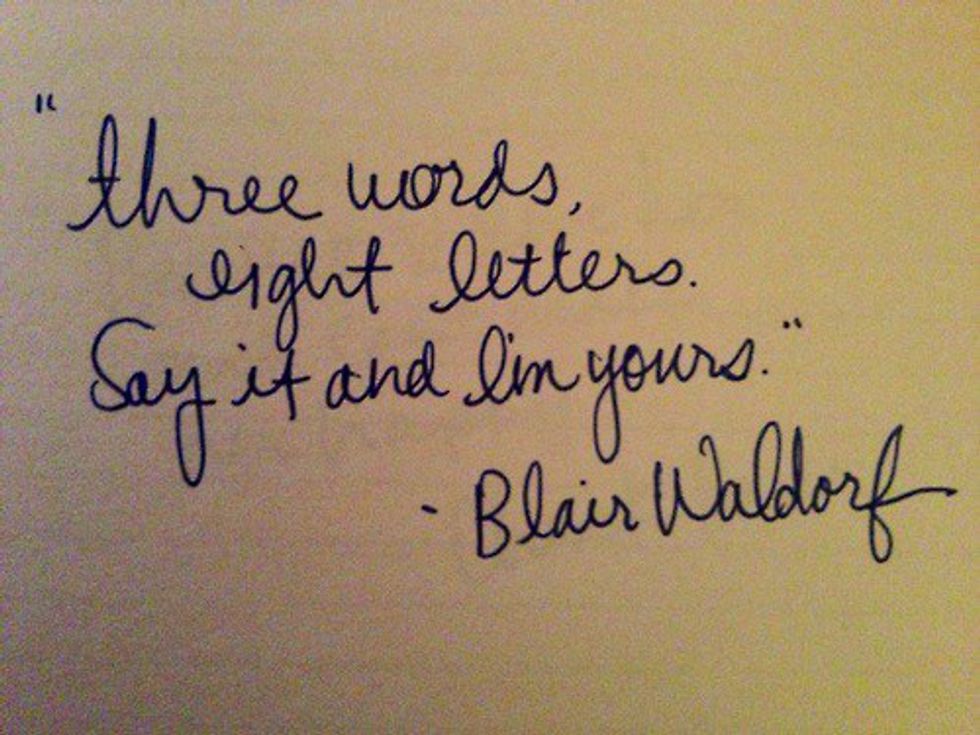 "three words,
eight letters.
Say it and I'm yours."
- Blair Waldorf